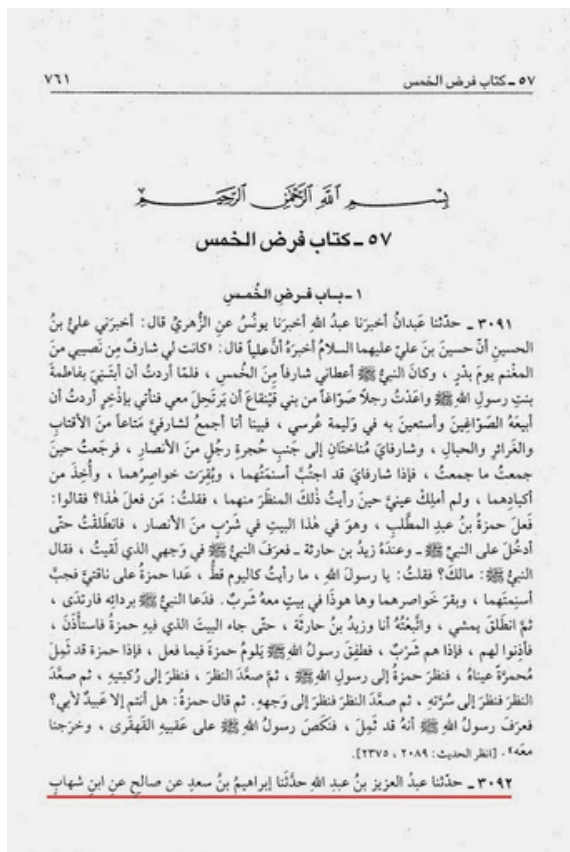 ٥٧ ـ كتاب فرض الخمس
٧٦١
بسم الله الرحمن الرحيم
٥٧ ـ كتاب فرض الخمس
١ ـ باب فرضِ الخُمسِ
٣٠٩١ ـ حدّثنا عَبدانُ أخبرَنا عبدُ اللهِ أخبرَنا يونُسُ عنِ الزُّهريِّ قال: أخبرَني عليُّ بنُ
الحسينِ أنّ حسينَ بنَ عليٍّ عليهما السلامُ أخبرَهُ أنَّ علياً قال: «كانت لي شارفٌ مِن نَصيبي منَ
المغْنمِ يومَ بدْرٍ ، وكانَ النبيُّ ﷺ أعطاني شارفاً مِنَ الخُمسِ ، فلمّا أردتُ أن أبتَنِيَ بفاطمةَ
بنتِ رسولِ اللهِ ﷺ واعَدْتُ رجلًا صَوّاغاً من بني قَيْنقاعَ أن يَرتَحِلَ معي فنأتي بإذْخِرٍ أردتُ أن
أبيعَهُ الصوّاغِينَ وأستعينَ به في وَليمةِ عُرسي ، فبينا أنا أجمعُ لشارفيَّ مَتاعاً منَ الأقتابِ
والغَرائرِ والحبالِ ، وشارفايَ مُناختَانِ إلى جَنبِ حُجرةِ رجُلٍ منَ الأنصارِ ، فرجَعتُ حينَ
جمعتُ ما جمعتُ ، فإذا شارفايَ قد اجتُبَّ أسنمَتُهما ، وبُقِرَت خواصِرُهما ، وأُخِذَ من
أكبادِهما ، ولم أملِكْ عينيَّ حينَ رأيتُ ذٰلكَ المنظَرَ منهما ، فقلتُ: مَن فعلَ هٰذا؟ فقالوا:
فَعلَ حمزةُ بنُ عبدِ المطَّلبِ ، وهوَ في هٰذا البيتِ في شَرْبٍ منَ الأنصار ، فانطلَقْتُ حتّى
أدخُلَ على النبيِّ ﷺ ـ وعندَهُ زيدُ بن حارثة ـ فعرَفَ النبيُّ ﷺ في وَجهي الذي لَقيتُ ، فقال
النبيُّ ﷺ: مالكَ؟ فقلتُ: يا رسولَ اللهِ ، ما رأيتُ كاليومِ قطُّ ، عَدا حمزةُ على ناقتيَّ فجبَّ
أسنِمتَهما ، وبقرَ خَواصرهما وها هوذا في بيتٍ معهُ شَربٌ. فدَعا النبيُّ ﷺ بردائهِ فارتَدَى ،
ثمَّ انطلَقَ يمشي ، واتَّبعْتُهُ أنا وزيدُ بنُ حارثَةَ ، حتّى جاء البيتَ الذي فيهِ حمزةُ فاستأْذَنَ ،
فأذِنوا لهم ، فإذا هم شَرْبٌ ، فطفِقَ رسولُ اللهِ ﷺ يَلومُ حمزةَ فيما فعل ، فإذا حمزة قد ثَمِلَ
مُحمرَّةً عيناهُ ، فنظرَ حمزةُ إلى رسولِ اللهِ ﷺ ، ثمَّ صعَّدَ النظرَ ، فنظرَ إلى رُكبتِيهِ ، ثم صعَّدَ
النظرَ فنظرَ إلى سُرَّتهِ ، ثم صعَّدَ النظرَ فنظرَ إلى وَجهِهِ. ثم قال حمزةُ: هل أنتم إلا عَبيدٌ لأبي؟
فعرَفَ رسولُ اللهِ ﷺ أنه قد ثَمِلَ ، فنَكَصَ رسولُ اللهِ ﷺ على عَقبيهِ القَهقَرى ، وخرَجنا
معَه». [انظر الحديث: ٢٠٨٩ ، ٢٣٧٥].
٣٠٩٢ ـ حدّثنا عبدُ العزيز بنُ عبدِ اللهِ حدَّثَنا إبراهيمُ بنُ سعدٍ عن صالحٍ عنِ ابنِ شهابٍ